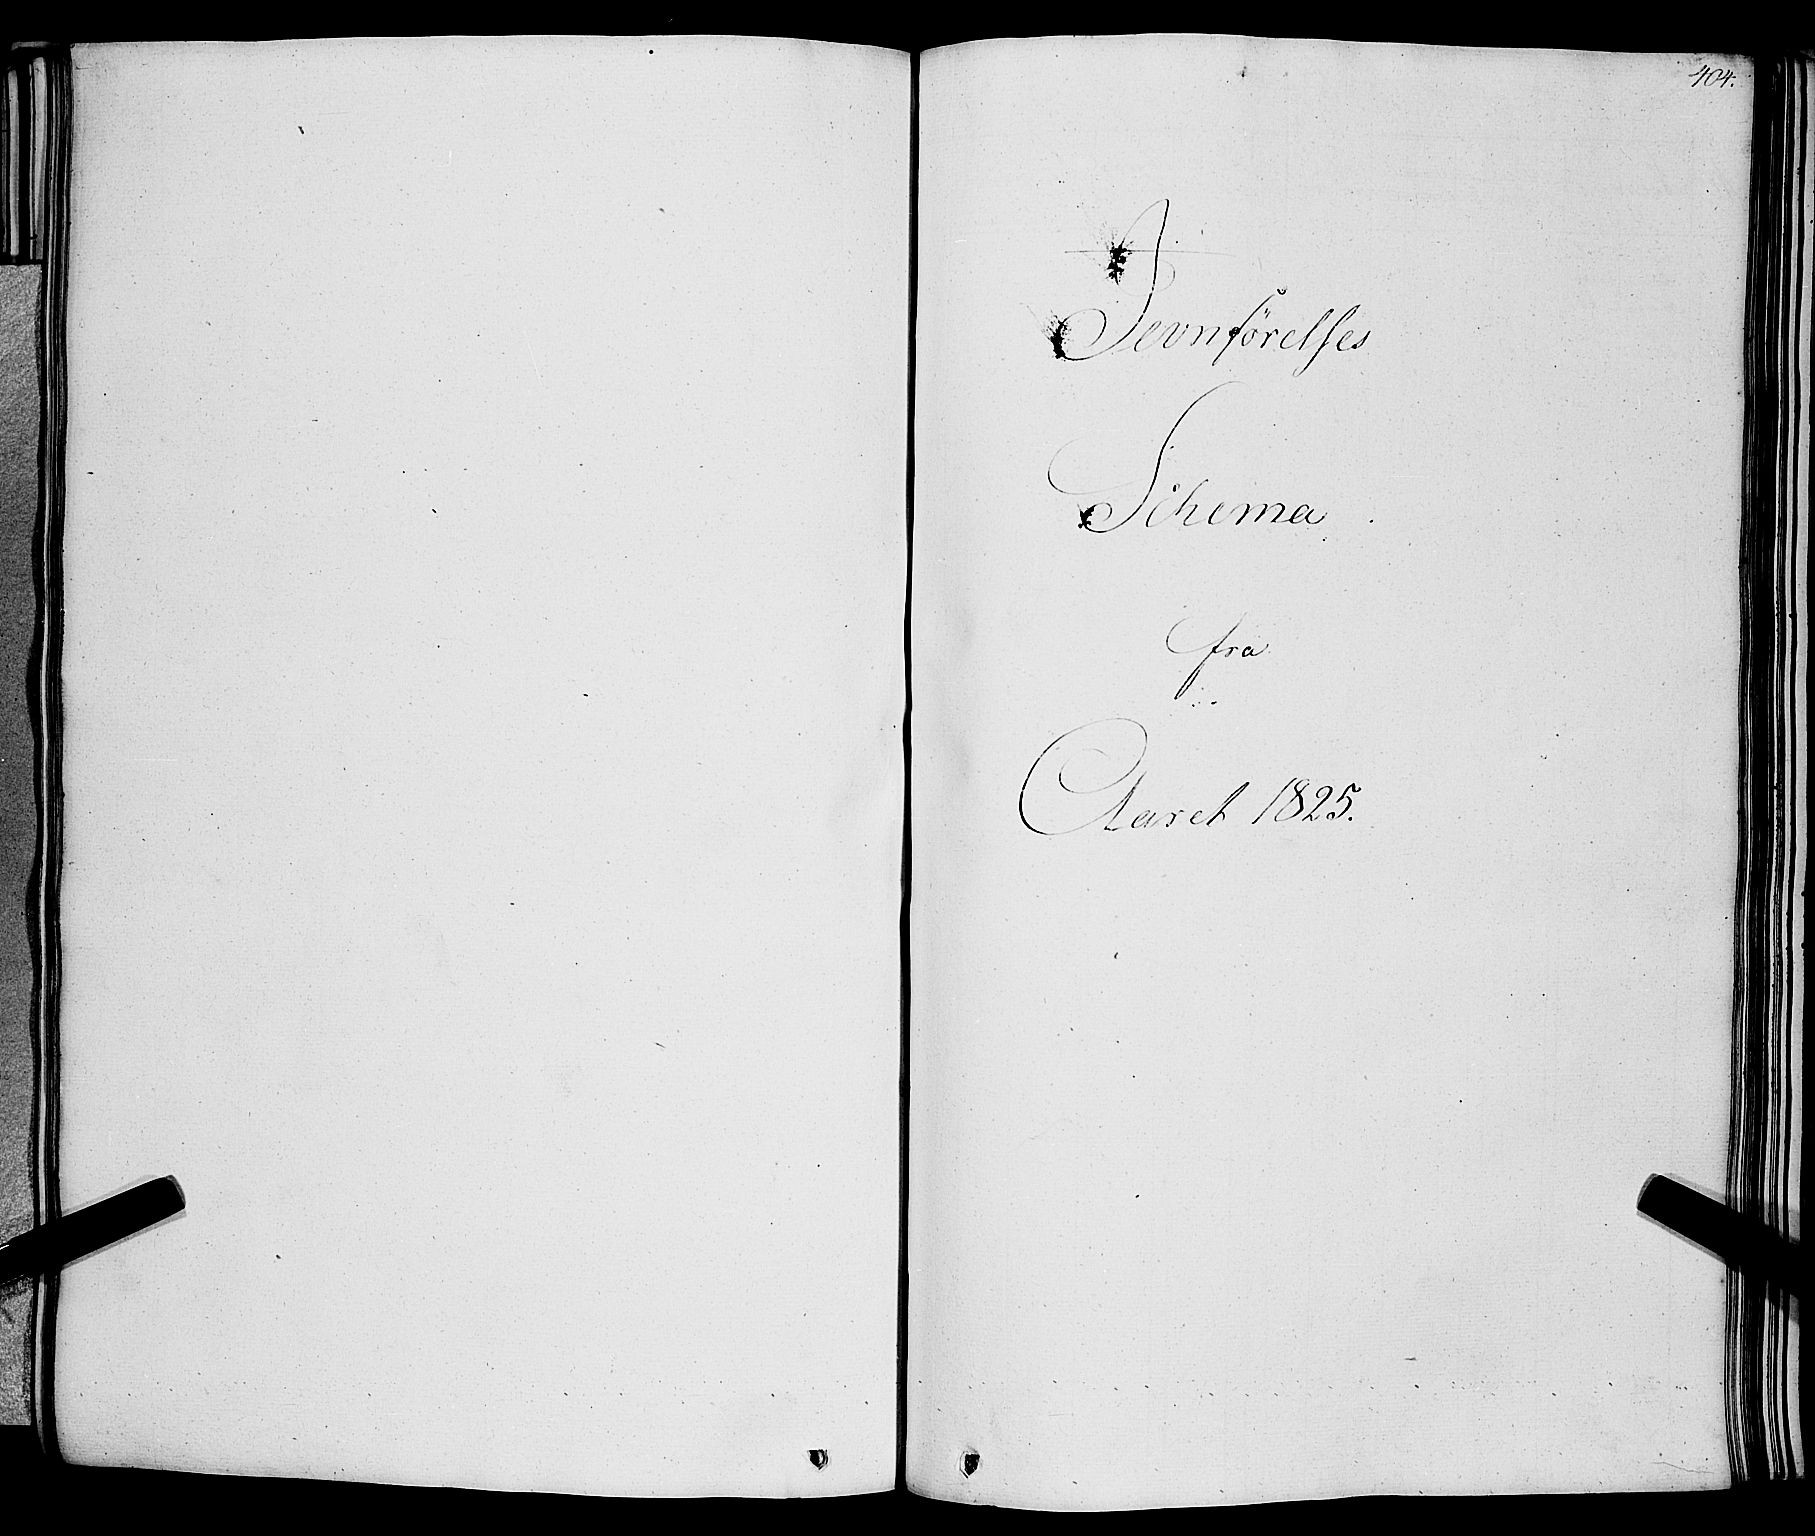 404.
Jevnførelses
Schema
fra
Aaret 1825.